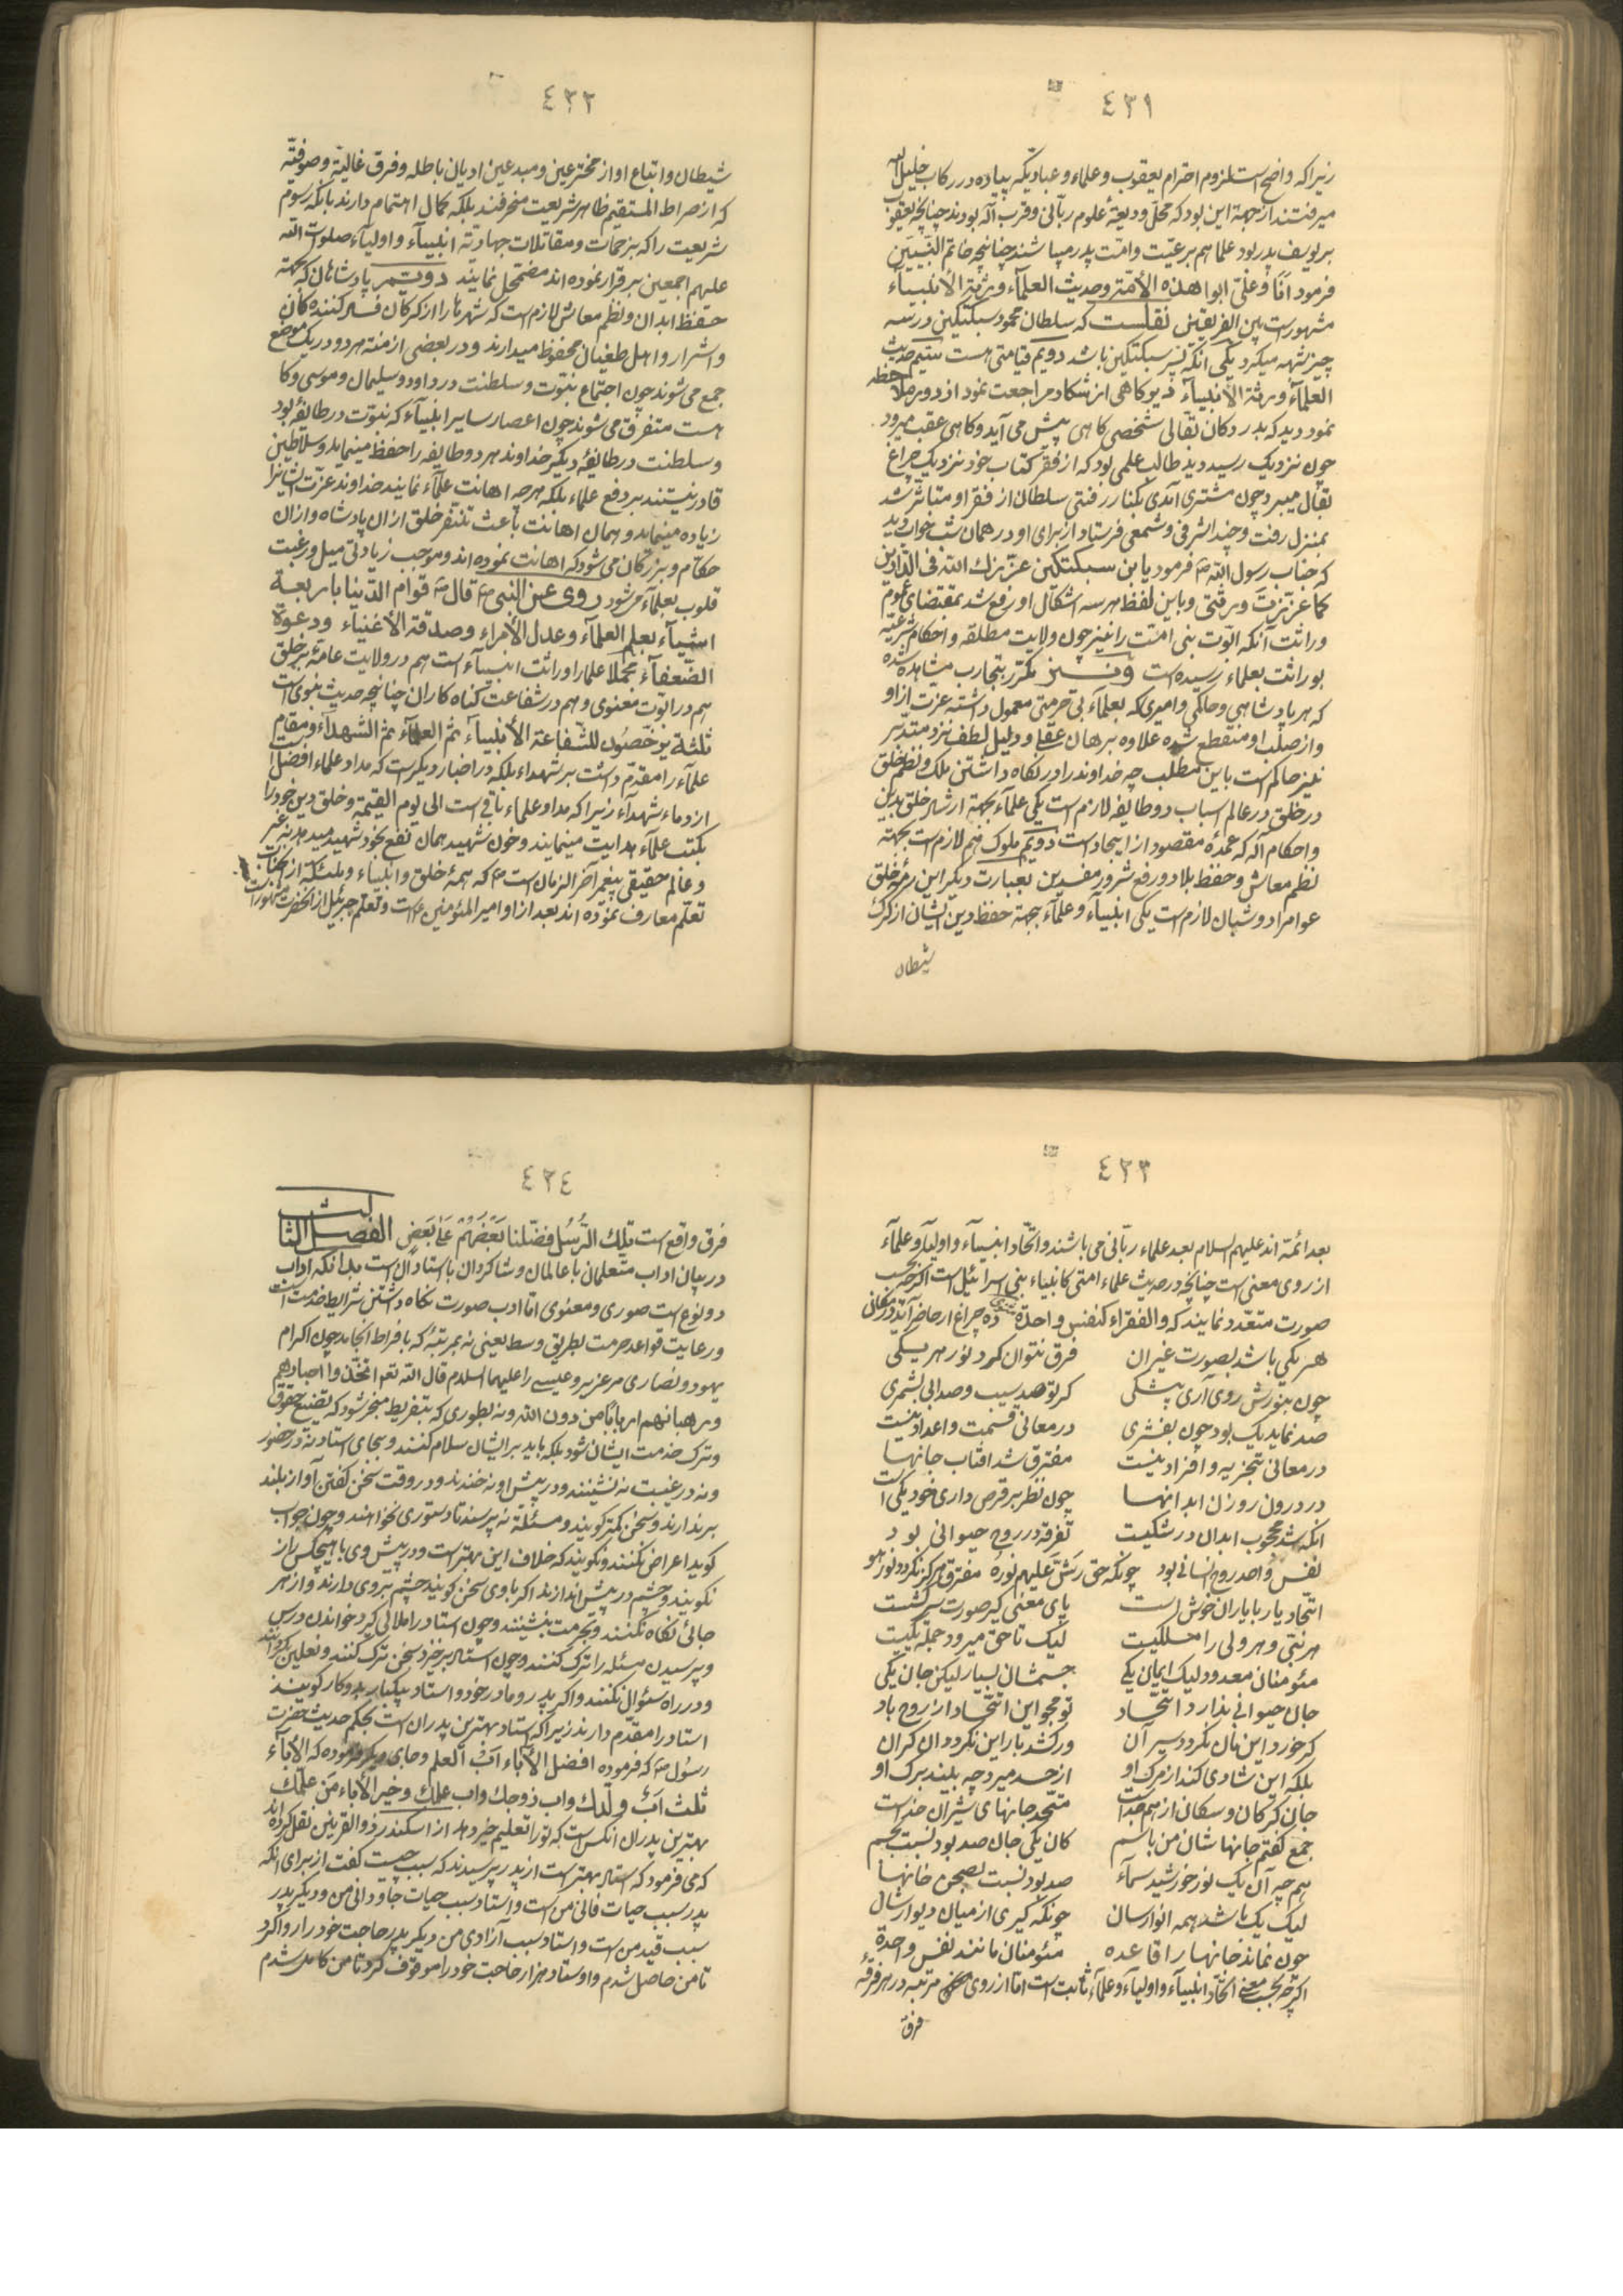 ٤٣١
زیرا که واضح است لزوم احترام یعقوب و علماء و عبادیکه پیاده در رکاب خلیل الله
میرفتند از جهة این بود که محل ودیعهٔ علوم ربانی و قرب اله بودند چنانچه یعقوب
بر یوسف پدر بود علما هم بر رعیّت و امّت پدر میباشند چنانچه خاتم النّبیّین
فرمود انا و علیّ ابوا هذه الأمّة و حدیث العلمآء ورثة الأنبیآء
مشهور است بین الفریقین نقلست که سلطان محمود سبکتکین در سه
چیز شبهه میکرد یکی آنکه پسر سبکتکین باشد دویم قیامتی هست سیّم حدیث
العلمآء ورثة الأنبیآء که گاهی از شکار مراجعت نمود از دور ملاحظه
نمود دید که بدر دکان بقالی شخصی گاهی پیش می آید و گاهی عقب میرود
چون نزدیک رسید دید طالب علمی بود که از فقر کتاب خود نزدیک چراغ
بقال میبرد چون مشتری آمدی بکنار رفتی سلطان از فقر او متأثر شد
بمنزل رفت و چند اشرفی و شمعی فرستاد از برای او در همان شب خواب دید
که جناب رسول الله ص فرمود یابن سبکتکین عزّزك الله فی الدّارین
کما عزّزت ورثتی و باین لفظ هر سه اشکال او رفع شد بمقتضای عموم
وراثت آنکه ابوّت نبی امّت را نیز چون ولایت مطلقه و احکام شرعیّه
بوراثت بعلماء رسیده است و نیز مکرّر بتجارب مشاهده شده
که هر پادشاهی و حاکمی و امیری که بعلمآء بی حرمتی معمول داشته عزت از او
و از صلب او منقطع شده علاوه برهان عقل و دلیل لطف نزد متدبّر
نیز حاکم است باین مطلب چه خداوند را در نگاه داشتن ملک و نظم خلق
در خلق در عالم اسباب دو طایفه لازم است یکی علمآء بجهة ارشاد خلق بدین
و احکام اله که عمدهٔ مقصود از ایجاد است دویم ملوک هم لازم است بجهة
نظم معاش و حفظ بلاد و رفع شرور مفسدین بعبارت دیگر این رمهٔ خلق
عوام را دو شبان لازم است یکی انبیآء و علمآء بجهة حفظ دین ایشان از گرگ
شیطان
٤٣٢
شیطان و اتباع او از مخترعین و مبدعین ادیان باطله و فرق غالیّة و صوفیّة
که از صراط المستقیم ظاهر شریعت منحرفند بلکه کمال اهتمام دارند بآنکه رسوم
شریعت را که بزحمات و مقاتلات جهادیّة انبیآء و اولیآء صلوات الله
علیهم اجمعین برقرار نموده اند مضمحل نمایند دویّم پادشاهان که بجهة
حفظ ابدان و نظم معاش لازم است که شهرها را از گرگان فساد کننده گان
و اشرار و اهل طغیان محفوظ میدارند و در بعضی از منه هر دو در یک موضع
جمع می شوند چون اجتماع نبوّت و سلطنت در داود و سلیمان و موسی و گا
هست متفرق می شوند چون اعصار سایر انبیآء که نبوّت در طایفهٔ بود
و سلطنت در طایفهٔ دیگر خداوند هر دو طایفه را حفظ مینماید و سلاطین
قادر نیستند بر دفع علماء بلکه هر چه اهانت علمآء نمایند خداوند عزّت ایشانرا
زیاده مینماید و همان اهانت باعث تنفّر خلق از ان پادشاه و از ان
حکّام و بزرگان می شود که اهانت نموده اند و موجب زیادتی میل و رغبت
قلوب بعلمآء میشود روی عن النبی ص قال ص قوام الدّنیا باربعة
اشیآء بعلم العلمآء و عدل الأمراء و صدقة الأغنیاء و دعوة
الضّعفآء مجملا علما را وراثت انبیآء است هم در ولایت عامّه بر خلق
هم در ابوّت معنوی و هم در شفاعت گناه کاران چنانچه حدیث نبوی است
ثلثة یرخّصون للشّفاعة الأنبیآء ثم العلمآء ثم الشهدآء و مقام
علمآء را مقدّم داشت بر شهداء بلکه در اخبار دیگر است که مداد علماء افضل است
از دماء شهدآء زیرا که مداد علماء باقی است الی یوم القیمة و خلق دین خود را
بکتب علمآء هدایت مینمایند و خون شهید همان نفع بخود شهید میدهد نه غیر
و عالم حقیقی پیغمبر آخر الزمان است ص که همهٔ خلق و انبیاء و ملئکة از آنجناب
تعلّم معارف نموده اند بعد از او امیر المؤمنین ع است و تعلّم جبرئیل از آنحضرت مشهور است
٤٣٣
بعد ائمّة اند علیهم السلام بعد علماء ربّانی می باشند و اتّحاد انبیآء و اولیآء و علمآء
از روی معنی است چنانچه در حدیث علماء امتی کانبیاء بنی اسرائیل است اگر چه بحسب
صورت متعدّد نمایند که والفقراء کنفس واحدة مثنوی ده چراغ ار حاضر آید در مکانی
هر یکی باشد بصورت غیر ان فرق نتوان کرد نور هر یکی
چون بنورش روی آری بی شکی گر تو صد سیب و صد ابی بشمری
صد نماید یک بود چون بفشری در معانی قسمت و اعداد نیست
در معانی تجزیه و افراد نیست مفترق شد افتاب جانها
در درون روزن ابدانها چون نظر بر قرص داری خود یکی است
آنکه شد محجوب ابدان در شکیست تفرقه در روح حیوانی بود
نفس واحد روح انسانی بود چونکه حق رشّ علیهم نوره مفترق هرگز نگردد نور هو
اتحاد یار با یاران خوش است پای معنی گیر صورت سرکشست
هر نبیّ و هر ولی را مسلکیست لیک تا حق میرود جمله یکیست
مئومنان معدود لیک ایمان یکی جسمشان بسیار لیکن جان یکی
جان حیوانی ندارد اتّحاد تو مجو این اتّحاد از روح باد
گر خورد این نان نگردد سیر آن ور کشد بار این نگردد ان گران
بلکه این شادی کند از مرگ او از حسد میرد چه بیند برگ او
جان گرگان و سگان از هم جداست متّحد جانهای شیران خداست
جمع گفتم جانهاشان من باسم کان یکی جان صد بود نسبت بجسم
هم چه آن یک نور خورشید سمآء صد بود نسبت بصحن خانها
لیک یک باشد همه انوارسان چونکه گیری از میان دیوارشان
چون نماند جانها را قاعده مئومنان مانند نفس واحدة
اگر چه بحسب معنی اتّحاد انبیآء و اولیاء و علمآء ثابت است امّا از روی مرتبه در هر فرقهٔ
فرق
٤٣٤
فرق واقع است تِلك الرُّسُل فضّلنا بَعضَهُم عَلی بَعض الفصل الثالث
در بیان اداب متعلمان با عالمان و شاگردان با استادان است بدانکه اداب
دو نوع است صوری و معنوی امّا ادب صورت نگاه داشتن شرایط خدمت است
و رعایت قواعد حرمت بطریق وسط یعنی نه بمرتبهٔ که بافراط انجامد چون اکرام
یهود و نصاری مر عزیر و عیسی را علیهما السلام قال الله تعم اتخذوا احبارهم
و رهبانهم اربابًا من دون الله و نه بطوری که بتفریط منجر شود که تضییع حقوق
و ترک خدمت ایشان شود بلکه باید بر ایشان سلام کنند و بجای استاد نه در حضور
و نه در غیبت نه نشینند و در پیش او نه خندند و در وقت سخن گفتن آواز بلند
برندارند و سخن کمتر گویند و مسئلة نه پرسند تا دستوری نخواهند و چون جواب
گوید اعراض نکنند و نگویند که خلاف این بهتر است و در پیش وی با هیچکس راز
نگویند و چشم در پیش اندازند اگر با وی سخن گویند چشم بروی دارند و از هر
جائی نگاه نکنند و بحرمت بنشینند و چون استاد را ملالی گیرد خواندن درس
و پرسیدن مسئله را ترک کنند و چون استاد برخیزد سخن ترک کنند و نعلین بگردانند
و در راه سئوال نکنند و اگر پدر و مادر خود و استاد بیکبار بدو کار گویند
استاد را مقدّم دارند زیرا که استاد بهترین پدران است بحکم حدیث حضرت
رسول ص که فرموده افضل الأباء ابُ العلم و جای دیگر فرموده که الأبآء
ثلث ابٌ ولّدك واب زوجك واب علمك و خیر الأباء من علّمك
بهترین پدران انکس است که تو را تعلیم خیر دهد از اسکندر ذو القرنین نقل کرده اند
که می فرمود که استاد بهتر است از پدر پرسیدند که سبب چیست گفت از برای آنکه
پدر سبب حیات فانی من است و استاد سبب حیات جاودانی من و دیگر پدر
سبب قید من است و استاد سبب آزادی من دیگر پدر حاجت خود را روا کرد
تا من حاصل شدم و اوستاد هزار حاجت خود را موقوف کرد تا من کامل شدم